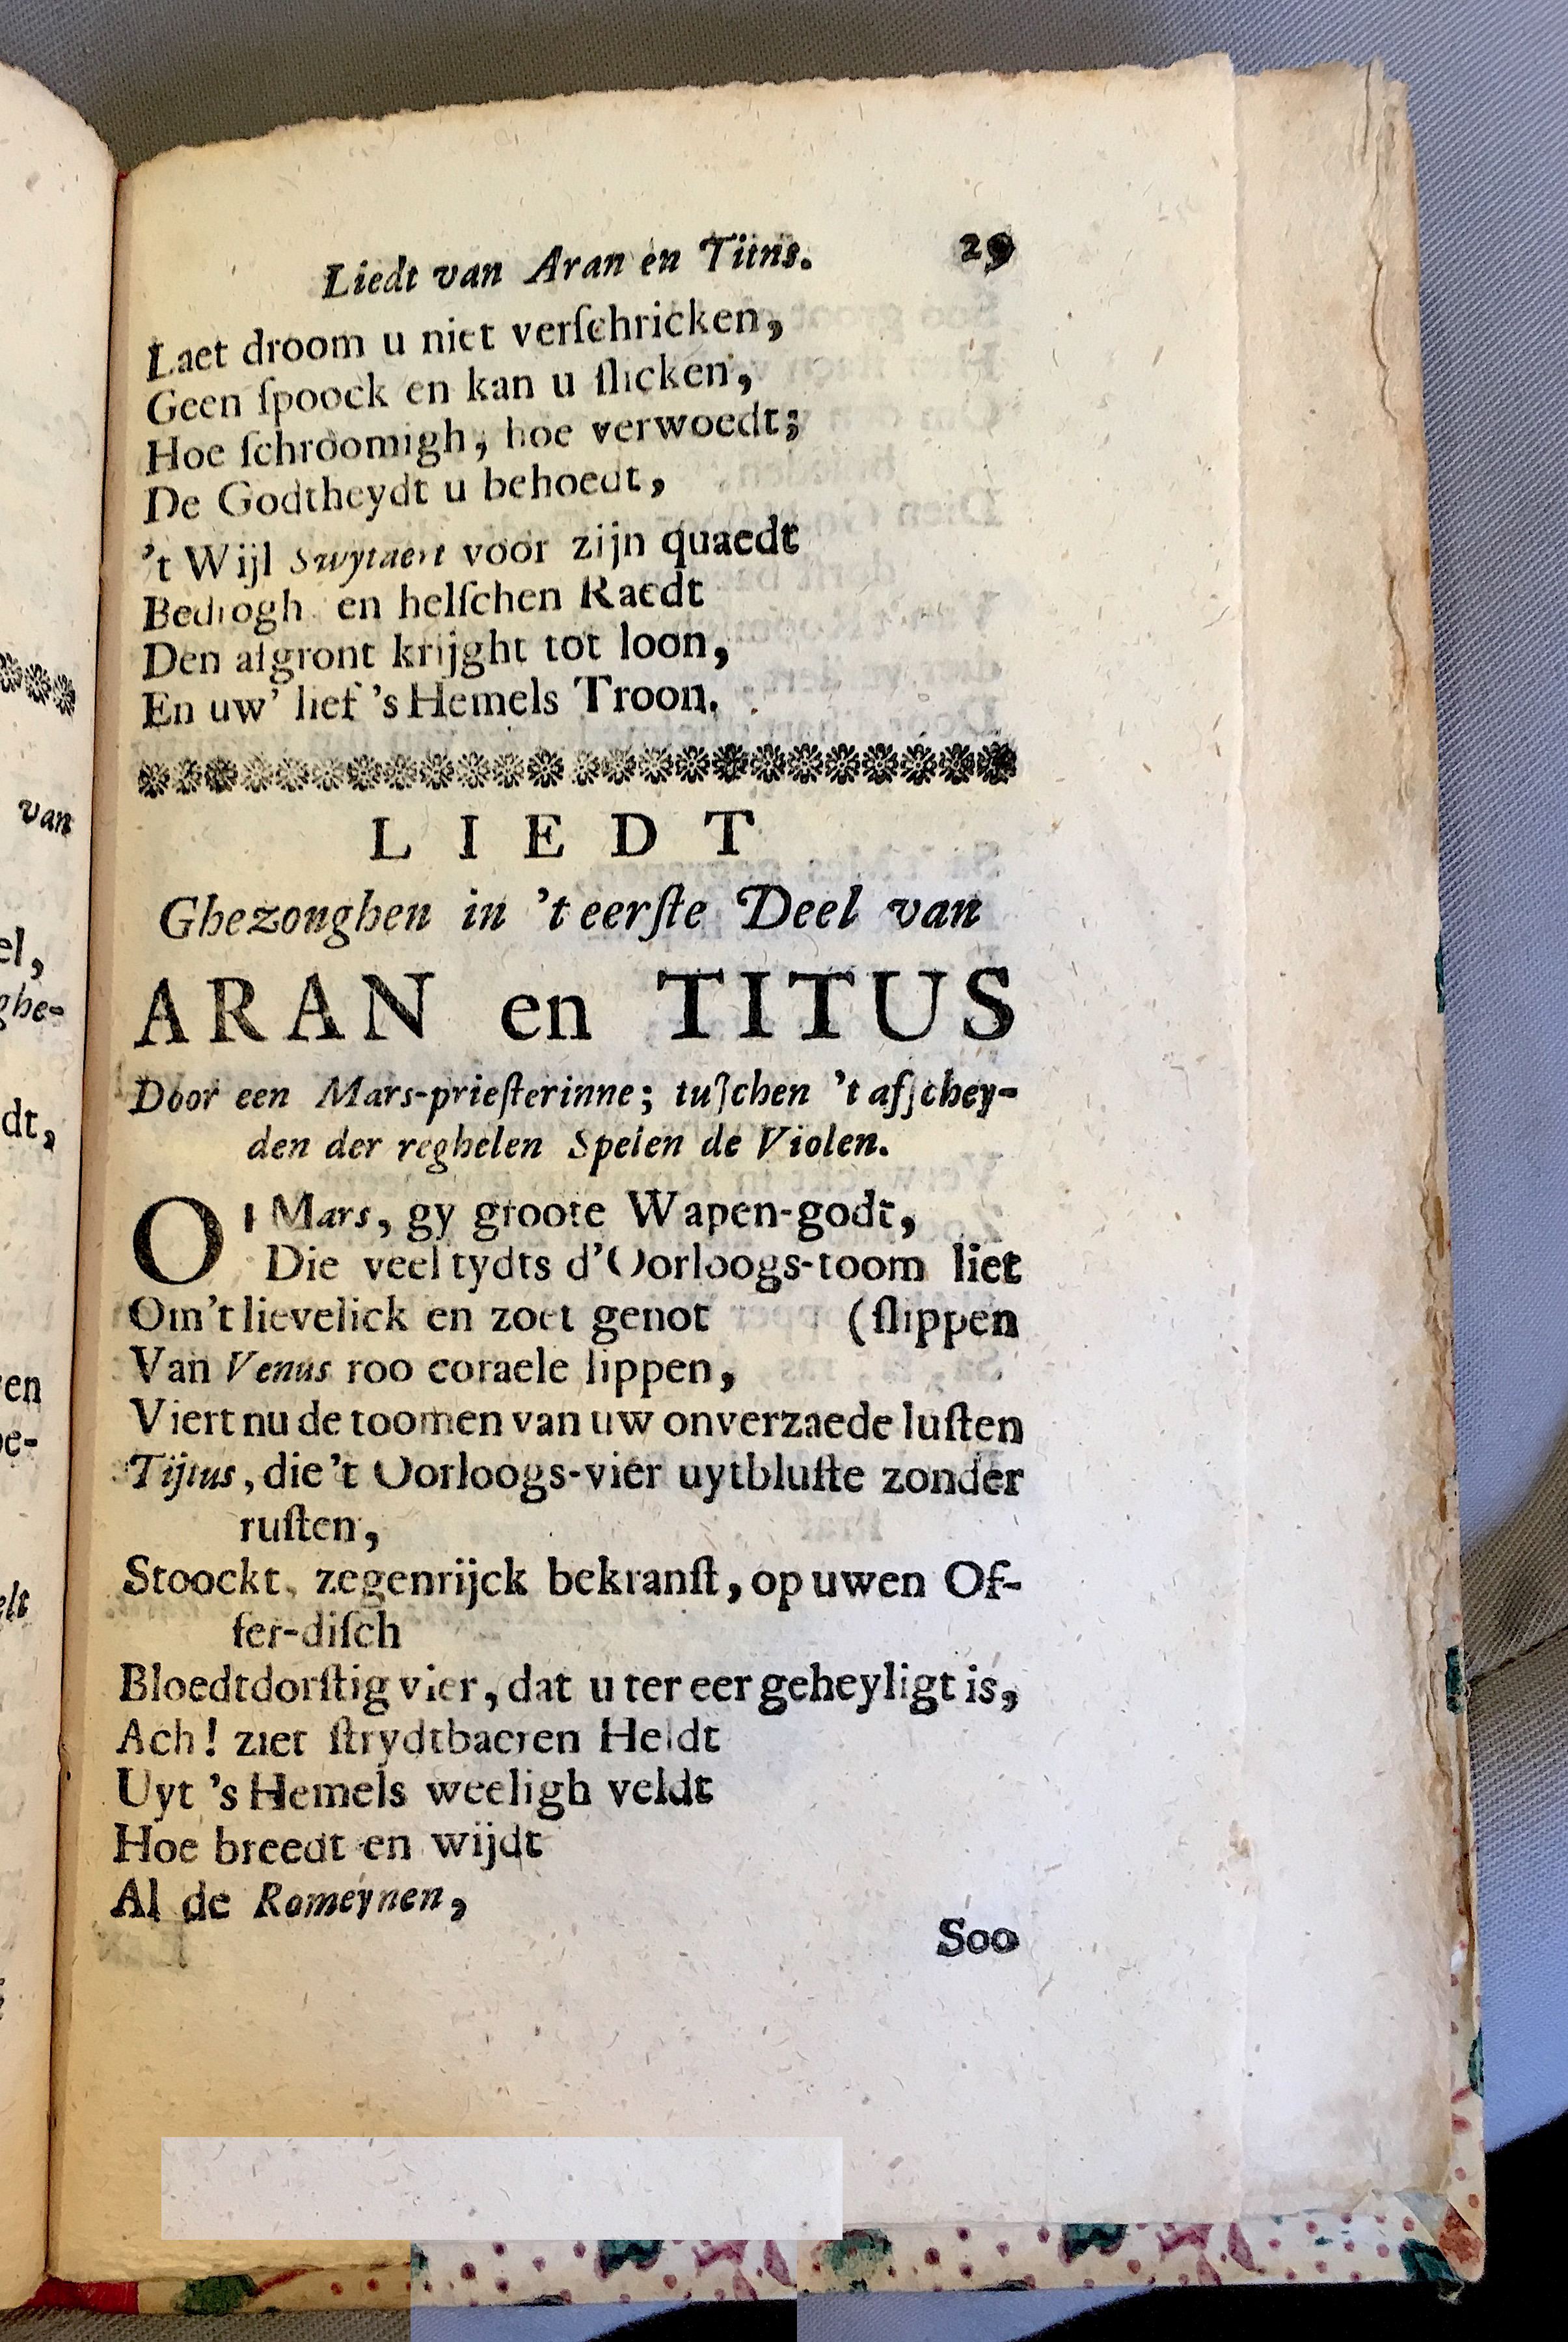 Liedt van Aran en Titns. 29
Laet droom u niet verſchricken,
Geen ſpoock en kan u ſlicken,
Hoe ſchroomigh, hoe verwoedt;
De Godtheydt u behoedt,
't Wijl Swytaert voor zijn quaedt
Bedrogh en helſchen Raedt
Den afgront krijght tot loon,
En uw' lief 's Hemels Troon.
LIEDT
Ghezonghen in 't eerſte Deel van
ARAN en TITUS
Door een Mars-prieſterinne; tuſchen 't afſchey-
den der reghelen Spelen de Violen.
O! Mars, gy groote Wapen-godt,
Die veel tydts d'Oorloogs-toom liet
Om 't lievelick en zoet genot (ſlippen
Van Venus roo coraele lippen,
Viert nu de toomen van uw onverzaede luſten
Tijtus, die 't Oorloogs-vier uytbluſte zonder
ruſten,
Stoockt, zegenrijck bekranſt, op uwen Of-
fer-diſch
Bloedtdorſtig vier, dat u ter eer geheyligt is,
Ach! ziet ſtrydtbaeren Heldt
Uyt 's Hemels weeligh veldt
Hoe breedt en wijdt
Al de Romeynen,
Soo
van
el,
ghe-
dt,
en
e-
elt